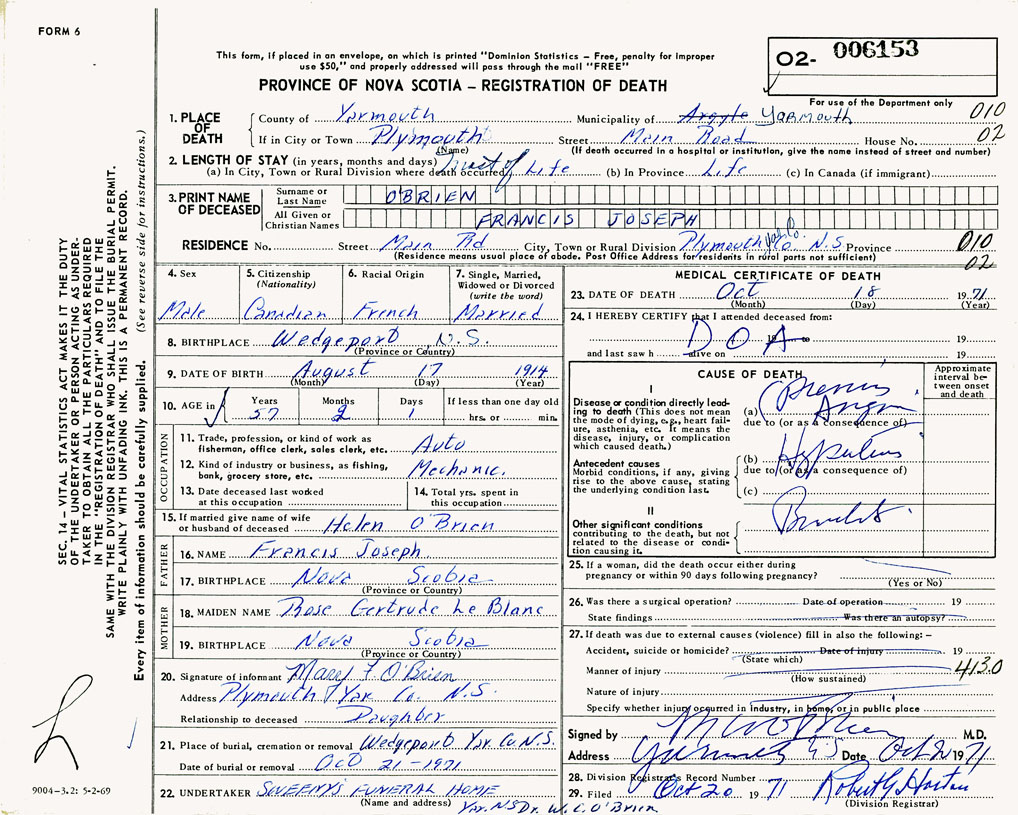 FORM 6
02- 006153
This form, if placed in an envelope, on which is printed "Dominion Statistics - Free, penalty for improper
use $50," and properly addressed will pass through the mail "FREE"
PROVINCE OF NOVA SCOTIA - REGISTRATION OF DEATH
For use of the Department only
1. PLACE OF DEATH County of Yarmouth Municipality of Argyle Yarmouth 010
If in City or Town Plymouth Street Main Road House No. 02
(Name) (If death occurred in a hospital or institution, give the name instead of street and number)
2. LENGTH OF STAY (in years, months and days) Most of
(a) In City, Town or Rural Division where death occurred Life (b) In Province Life (c) In Canada (if immigrant)
3. PRINT NAME OF DECEASED Surname or Last Name O'BRIEN
All Given or Christian Names FRANCIS JOSEPH
RESIDENCE No. Street Main Rd City, Town or Rural Division Plymouth Yar. Co. N.S. Province 010
(Residence means usual place of abode. Post Office Address for residents in rural parts not sufficient) 02
4. Sex Male
5. Citizenship (Nationality) Canadian
6. Racial Origin French
7. Single, Married, Widowed or Divorced (write the word) Married
8. BIRTHPLACE Wedgeport N.S.
(Province or Country)
9. DATE OF BIRTH August 17 1914
(Month) (Day) (Year)
10. AGE in Years 57 Months 2 Days 1 If less than one day old hrs. or min.
OCCUPATION
11. Trade, profession, or kind of work as fisherman, office clerk, sales clerk, etc. Auto
12. Kind of industry or business, as fishing, bank, grocery store, etc. Mechanic.
13. Date deceased last worked at this occupation
14. Total yrs. spent in this occupation
15. If married give name of wife or husband of deceased Helen O'Brien
FATHER
16. NAME Francis Joseph
17. BIRTHPLACE Nova Scotia
(Province or Country)
MOTHER
18. MAIDEN NAME Rose Gertrude Le Blanc
19. BIRTHPLACE Nova Scotia
(Province or Country)
20. Signature of informant O'Brien
Address Plymouth Yar. Co. N.S.
Relationship to deceased Daughter
21. Place of burial, cremation or removal Wedgeport Yar. Co. N.S.
Date of burial or removal Oct 21-1971
22. UNDERTAKER SWEENY'S FUNERAL HOME
(Name and address) Yar. NS
MEDICAL CERTIFICATE OF DEATH
23. DATE OF DEATH Oct 18 1971
(Month) (Day) (Year)
24. I HEREBY CERTIFY that I attended deceased from:
D O A
19 to 19
and last saw h alive on 19
CAUSE OF DEATH
Approximate interval between onset and death
I
Disease or condition directly leading to death (This does not mean the mode of dying, e.g., heart failure, asthenia, etc. It means the disease, injury, or complication which caused death.)
(a)
due to (or as a consequence of)
Antecedent causes
Morbid conditions, if any, giving rise to the above cause, stating the underlying condition last.
(b)
due to (or as a consequence of)
(c)
II
Other significant conditions contributing to the death, but not related to the disease or condition causing it.
25. If a woman, did the death occur either during pregnancy or within 90 days following pregnancy?
(Yes or No)
26. Was there a surgical operation? Date of operation 19
State findings Was there an autopsy?
27. If death was due to external causes (violence) fill in also the following:-
Accident, suicide or homicide? Date of injury 19
(State which)
Manner of injury 4130
(How sustained)
Nature of injury
Specify whether injury occurred in industry, in home, or in public place
Signed by M.D.
Address Date Oct 2 1971
28. Division Registrar's Record Number
29. Filed Oct 20 1971 Robert G. Horton
(Division Registrar)
Dr. W. C. O'Brien
SEC. 14 - VITAL STATISTICS ACT MAKES IT THE DUTY
OF THE UNDERTAKER OR PERSON ACTING AS UNDERTAKER
TO OBTAIN ALL THE PARTICULARS REQUIRED
IN THE "REGISTRATION OF DEATH" AND TO FILE THE
SAME WITH THE DIVISION REGISTRAR WHO SHALL ISSUE THE BURIAL PERMIT.
WRITE PLAINLY WITH UNFADING INK. THIS IS A PERMANENT RECORD.
Every item of information should be carefully supplied. (See reverse side for instructions.)
9004-3.2: 5-2-69